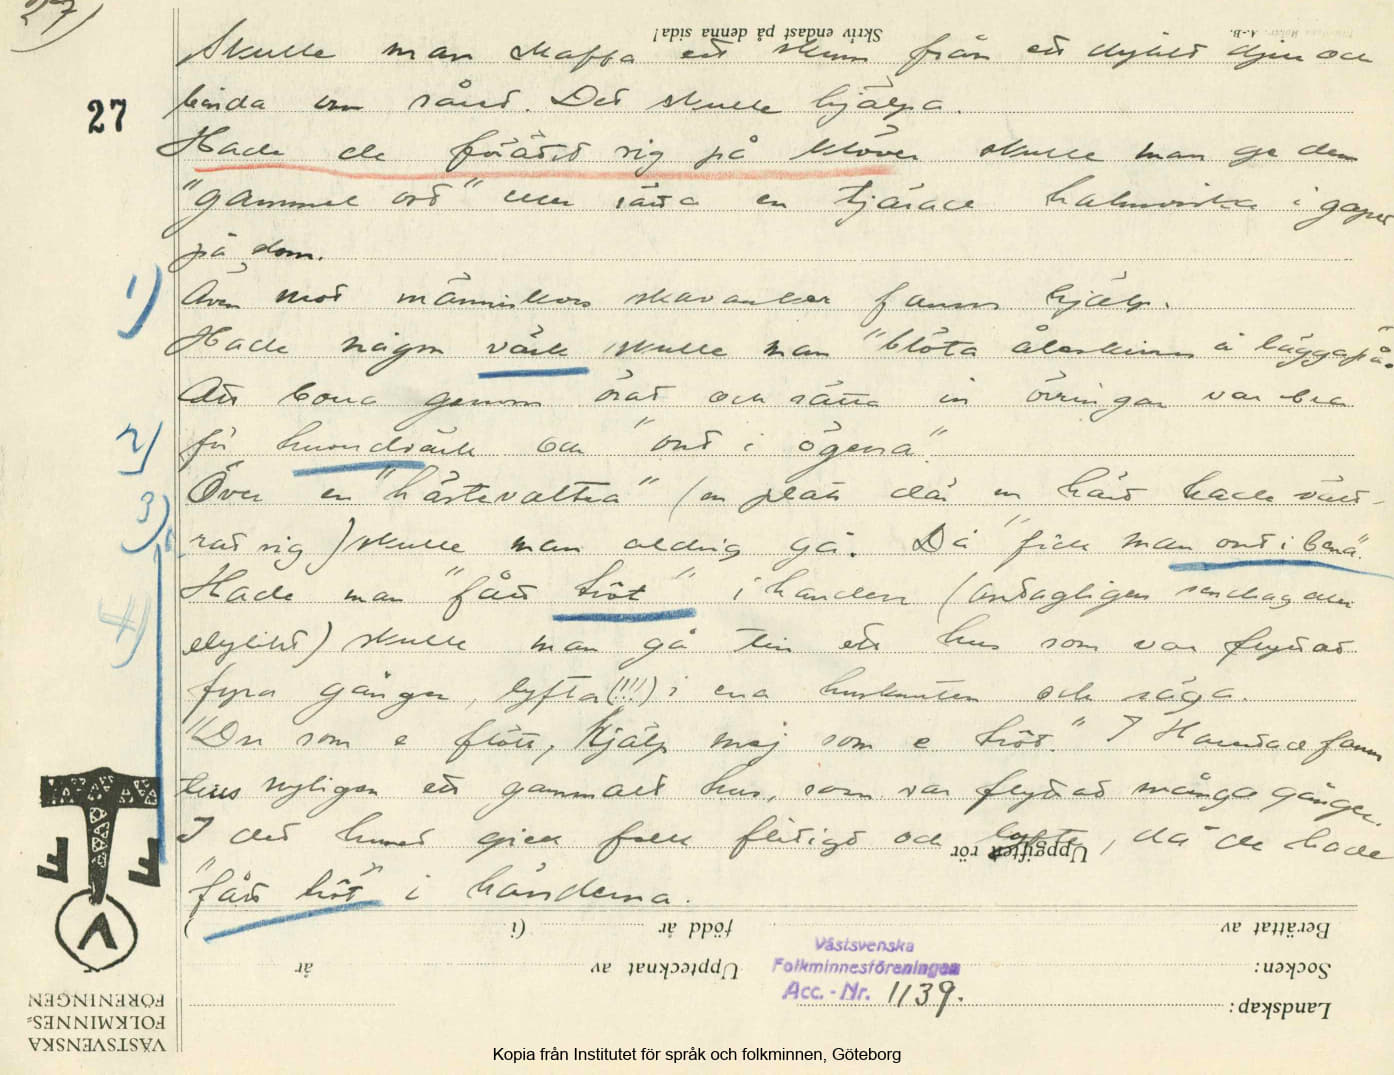 27)
Skriv endast på denna sida!
Skulle man skaffa ett skinn från ett dylikt djur och
27
binda om såret. Det skulle hjälpa.
Hade de förätit sig på klöver skulle man ge dem
"gammel ost" eller sätta en tjärad halmviska i gapet
på dom.
1) Även mot människors skavanker fanns hjälp.
Hade någon värk skulle man "blöta ålaskinn å lägga på.
Att borra genom örat och sätta in örringar var bra
2) för huvudvärk och "ont i ögena".
3) Över en "hästevaltra" (en plats där en häst hade vält-
rat sig) skulle man aldrig gå. Då "fick man ont i bena".
4) Hade man "fått tröt" i handen (antagligen sendrag eller
dylikt) skulle man gå till ett hus som var flyttat
fyra gånger, lyfta (!!!) i ena husknuten och säga.
"Du som e flött, hjälp mej som e tröt." I Harestad fanns
tills nyligen ett gammalt hus, som var flyttat många gånger.
I det huset gick folk flitigt och lyfte, då de hade
Uppgiften rör
"fått tröt" i händerna.
Berättat av
född år
(i
)
Västsvenska
Folkminnesföreningen
Acc.-Nr. 1139.
Upptecknat av
år
Socken:
Landskap:
VÄSTSVENSKA
FOLKMINNES-
FÖRENINGEN
Kopia från Institutet för språk och folkminnen, Göteborg